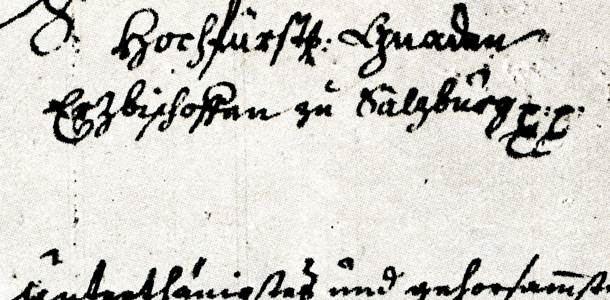 Hochfürstl: Gnaden
Erzbischoffen zu Salzburg
underthänigstes und gehorsambst